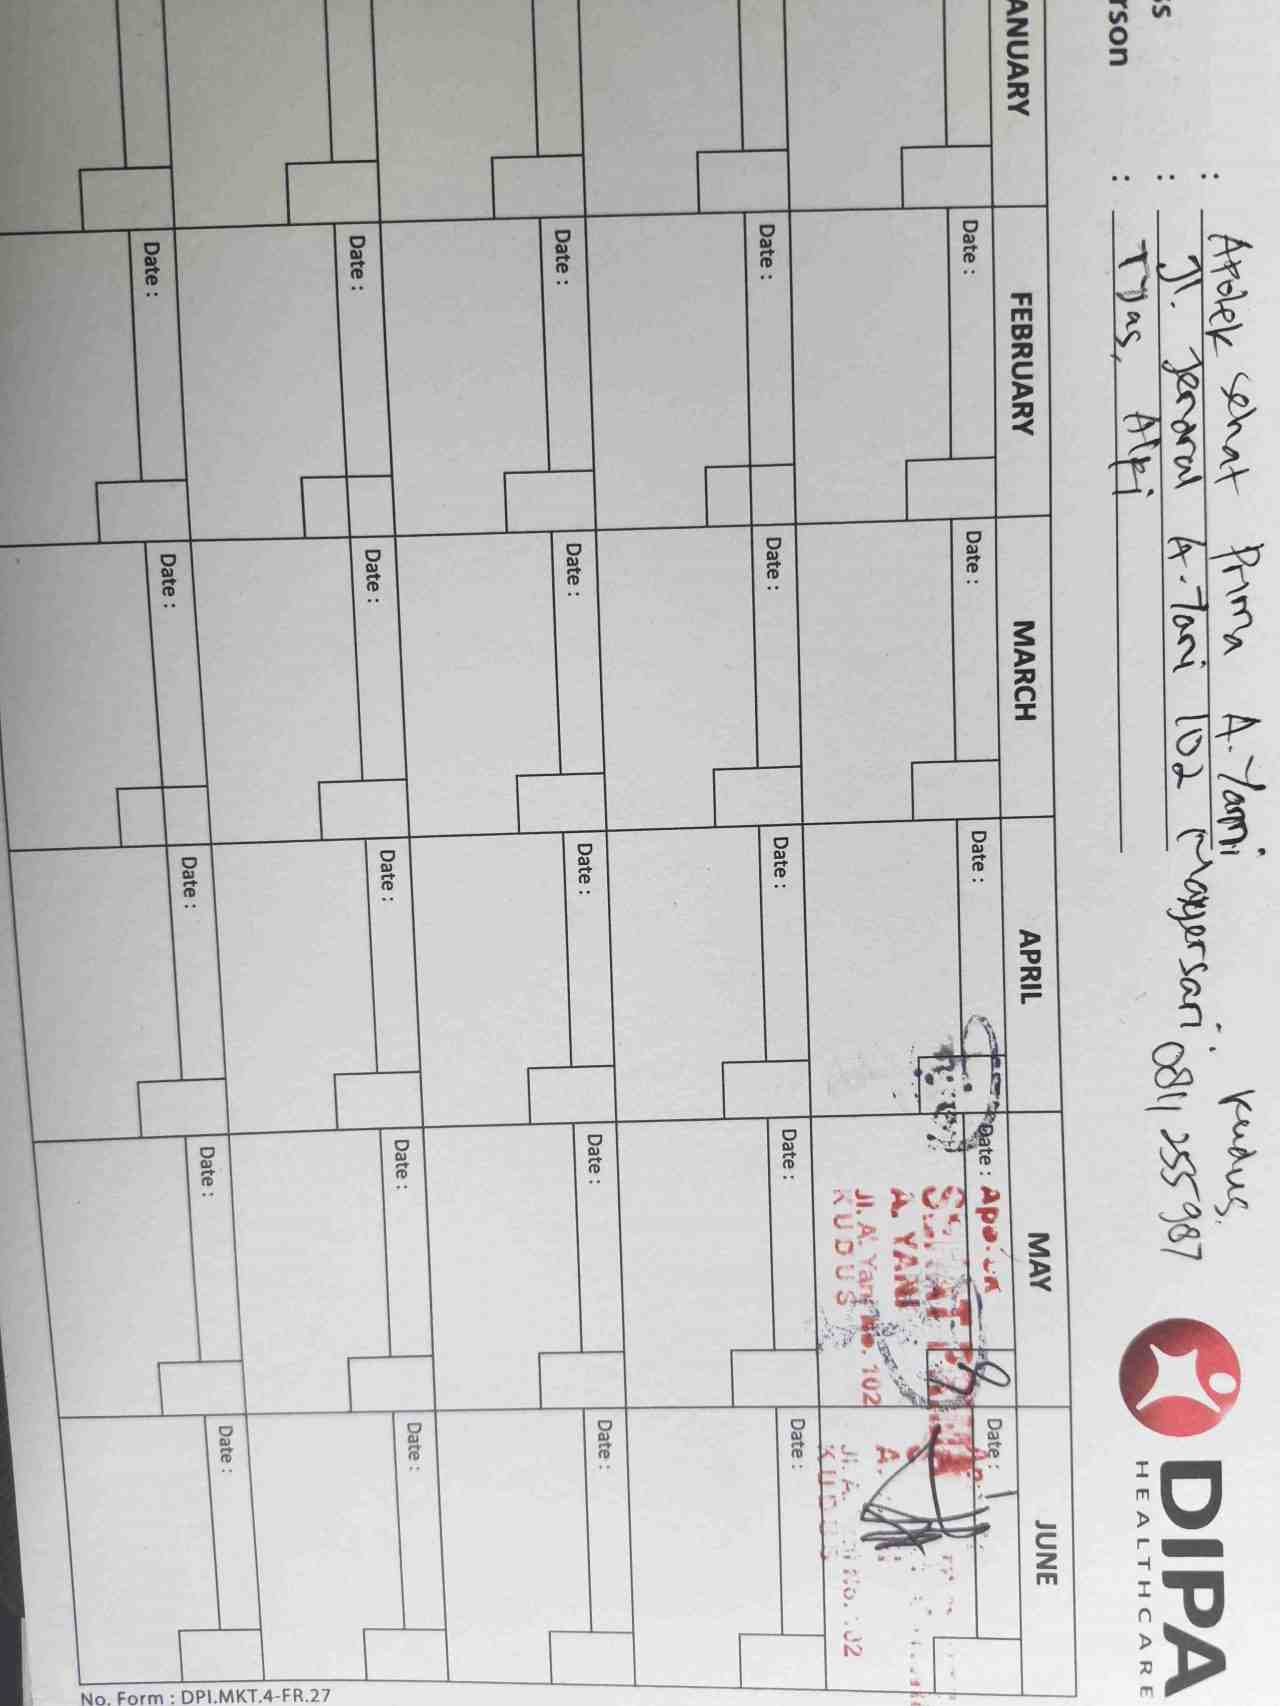 : Apotek Sehat Prima A. Yani Kudus.
ss : Jl. Jenderal A. Yani 102 Magersari 0811 255 987
rson : Tyas, Alpi
DIPA
HEALTHCARE
ANUARY FEBRUARY MARCH APRIL MAY JUNE
Date : Date : Date : Date : Date :
Apotek
SEHAT PRIMA
A. YANI
Jl. A. Yani No. 102
KUDUS
A.
Jl. A. No. 102
KUDUS
Date : Date : Date : Date : Date :
Date : Date : Date : Date : Date :
Date : Date : Date : Date : Date :
Date : Date : Date : Date : Date :
No. Form : DPI.MKT.4-FR.27